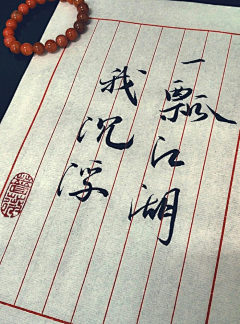 一瓢江湖
我沉浮